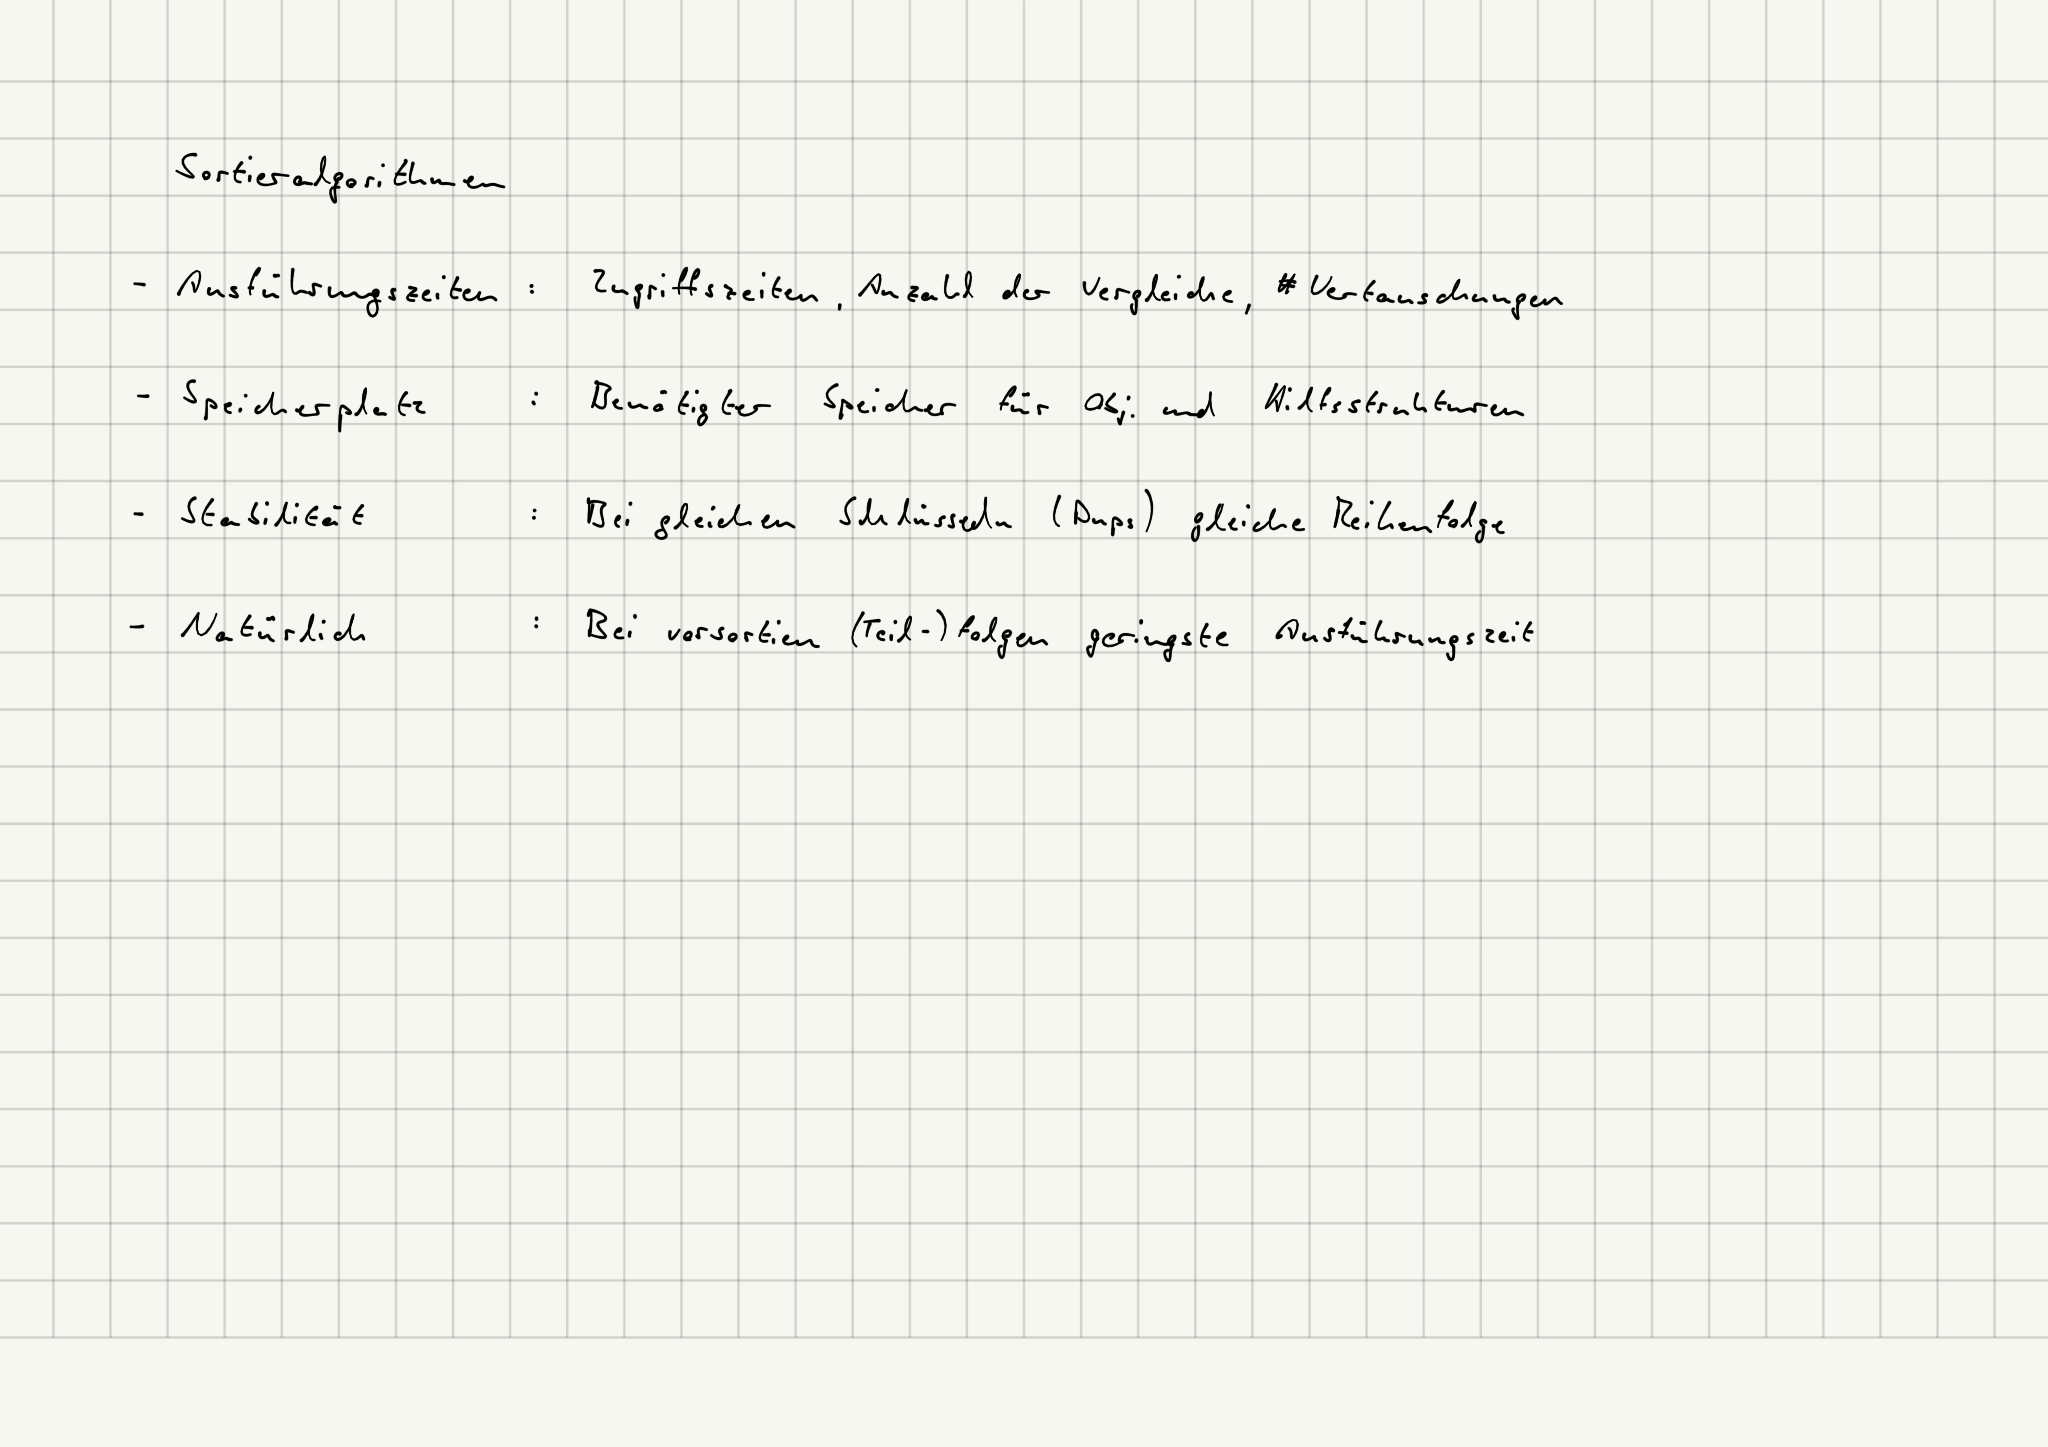 Sortieralgorithmen
- Ausführungszeiten : Zugriffszeiten, Anzahl der Vergleiche, # Vertauschungen
- Speicherplatz : Benötigter Speicher für Obj. und Hilfsstrukturen
- Stabilität : Bei gleichen Schlüsseln (Dups) gleiche Reihenfolge
- Natürlich : Bei vorsortien (Teil-)folgen geringste Ausführungszeit